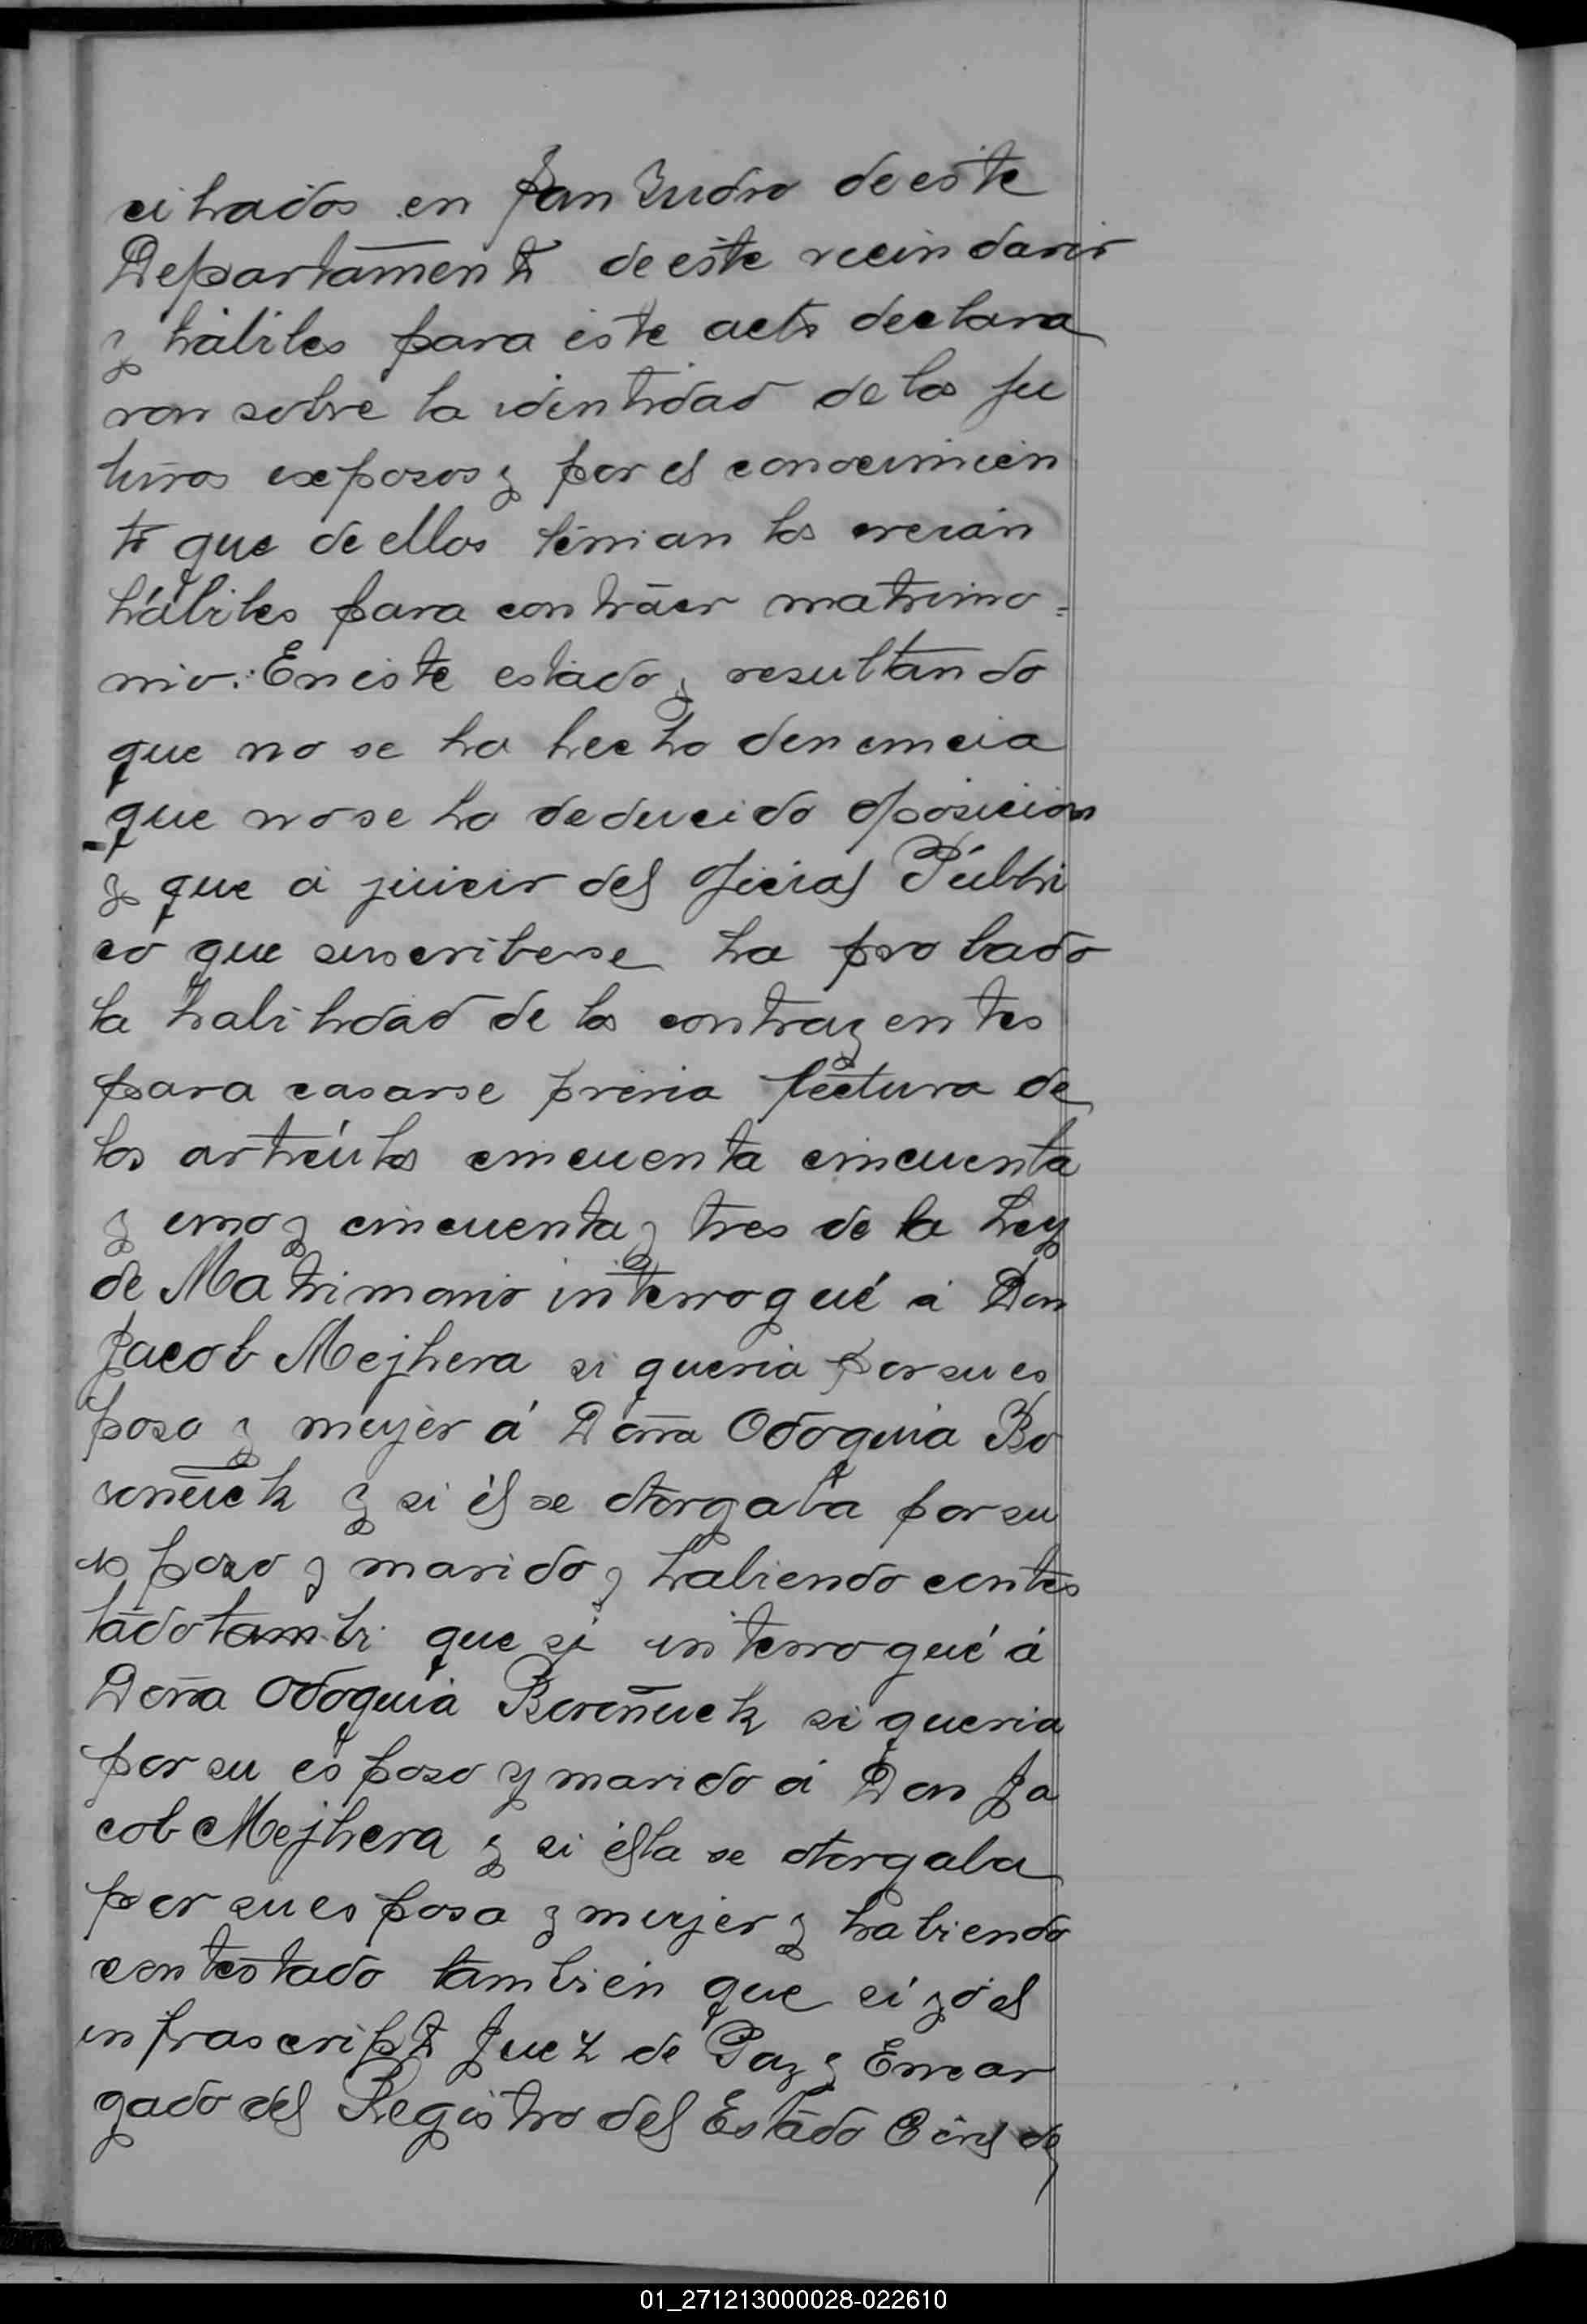 ciliados en San Isidro de este
Departamento de este vecindario
y hábiles para este acto declara
ron sobre la identidad de los fu
turos exposos y por el conocimien
to que de ellos tenian los creian
hábiles para contráer matrimo=
nio. En este estado y resultando
que no se ha hecho denuncia
que no se ha deducido oposicion
y que á juicio del oficial Públi
co que suscriberse ha probado
la habilidad de los contrayentes
para casarse previa lectura de
los artículos cincuenta cincuenta
y uno y cincuenta y tres de la Ley
de Matrimonio interrogué á Don
Jacob Mejhera si queria por su es
posa y mujer á Doña Odoquia Bo
roñuck y si él se otorgaba por su
esposo y marido y habiendo contes
tado tambi que si interrogué á
Doña Odoquia Boroñuck si queria
por su esposo y marido á Don Ja
cob Mejhera y si élla se otorgaba
por su esposa y mujer y habiendo
contestado también que sí yo el
infrascripto Juez de Paz y Encar
gado del Registro del Estado Civil de
01_271213000028-022610